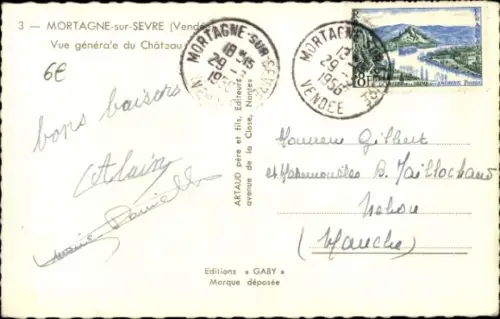 3 — MORTAGNE-sur-SEVRE (Vendé
Vue générale du Château
6€
MORTAGNE-SUR-SEVRE
18 45
29
19
MORTAGNE
29
1956
VENDEE
8F
bons baisers
Alain
Danielle
ARTAUD père et fils, Éditeurs
avenue de la Close, Nantes
Monsieur Gilbert
et Mesdemoiselles B.
(Manche)
Editions « GABY »
Marque déposée